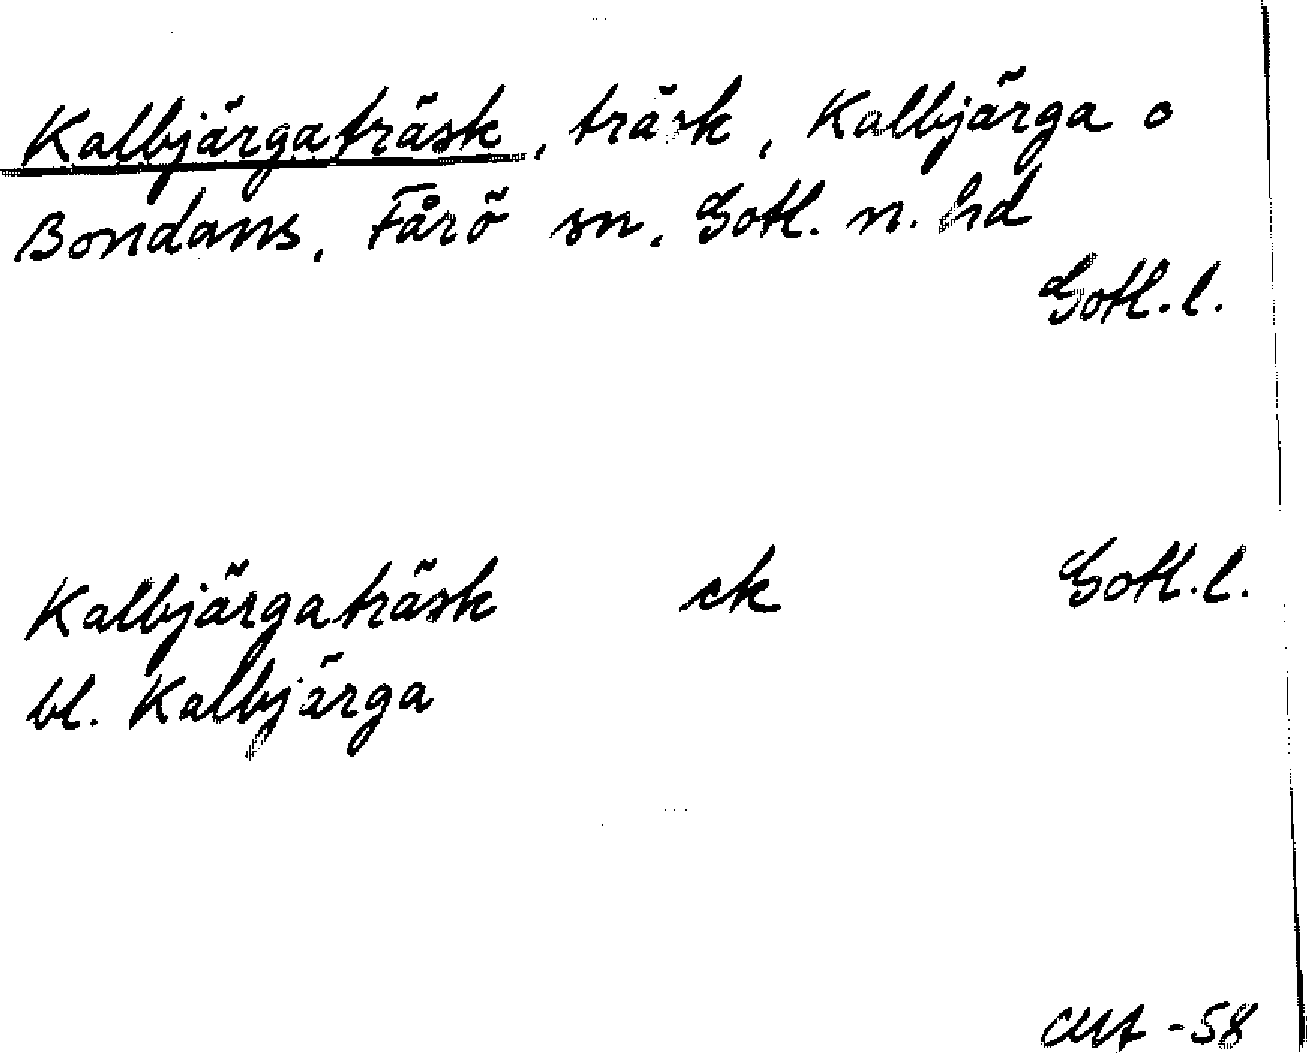 Kalbjärgaträsk, träsk, Kalbjärga o
Bondans, Fårö sn, Gotl. n. hd
Gotl. l.
Kalbjärgaträsk ek Gotl. l.
bl. Kalbjärga
-58